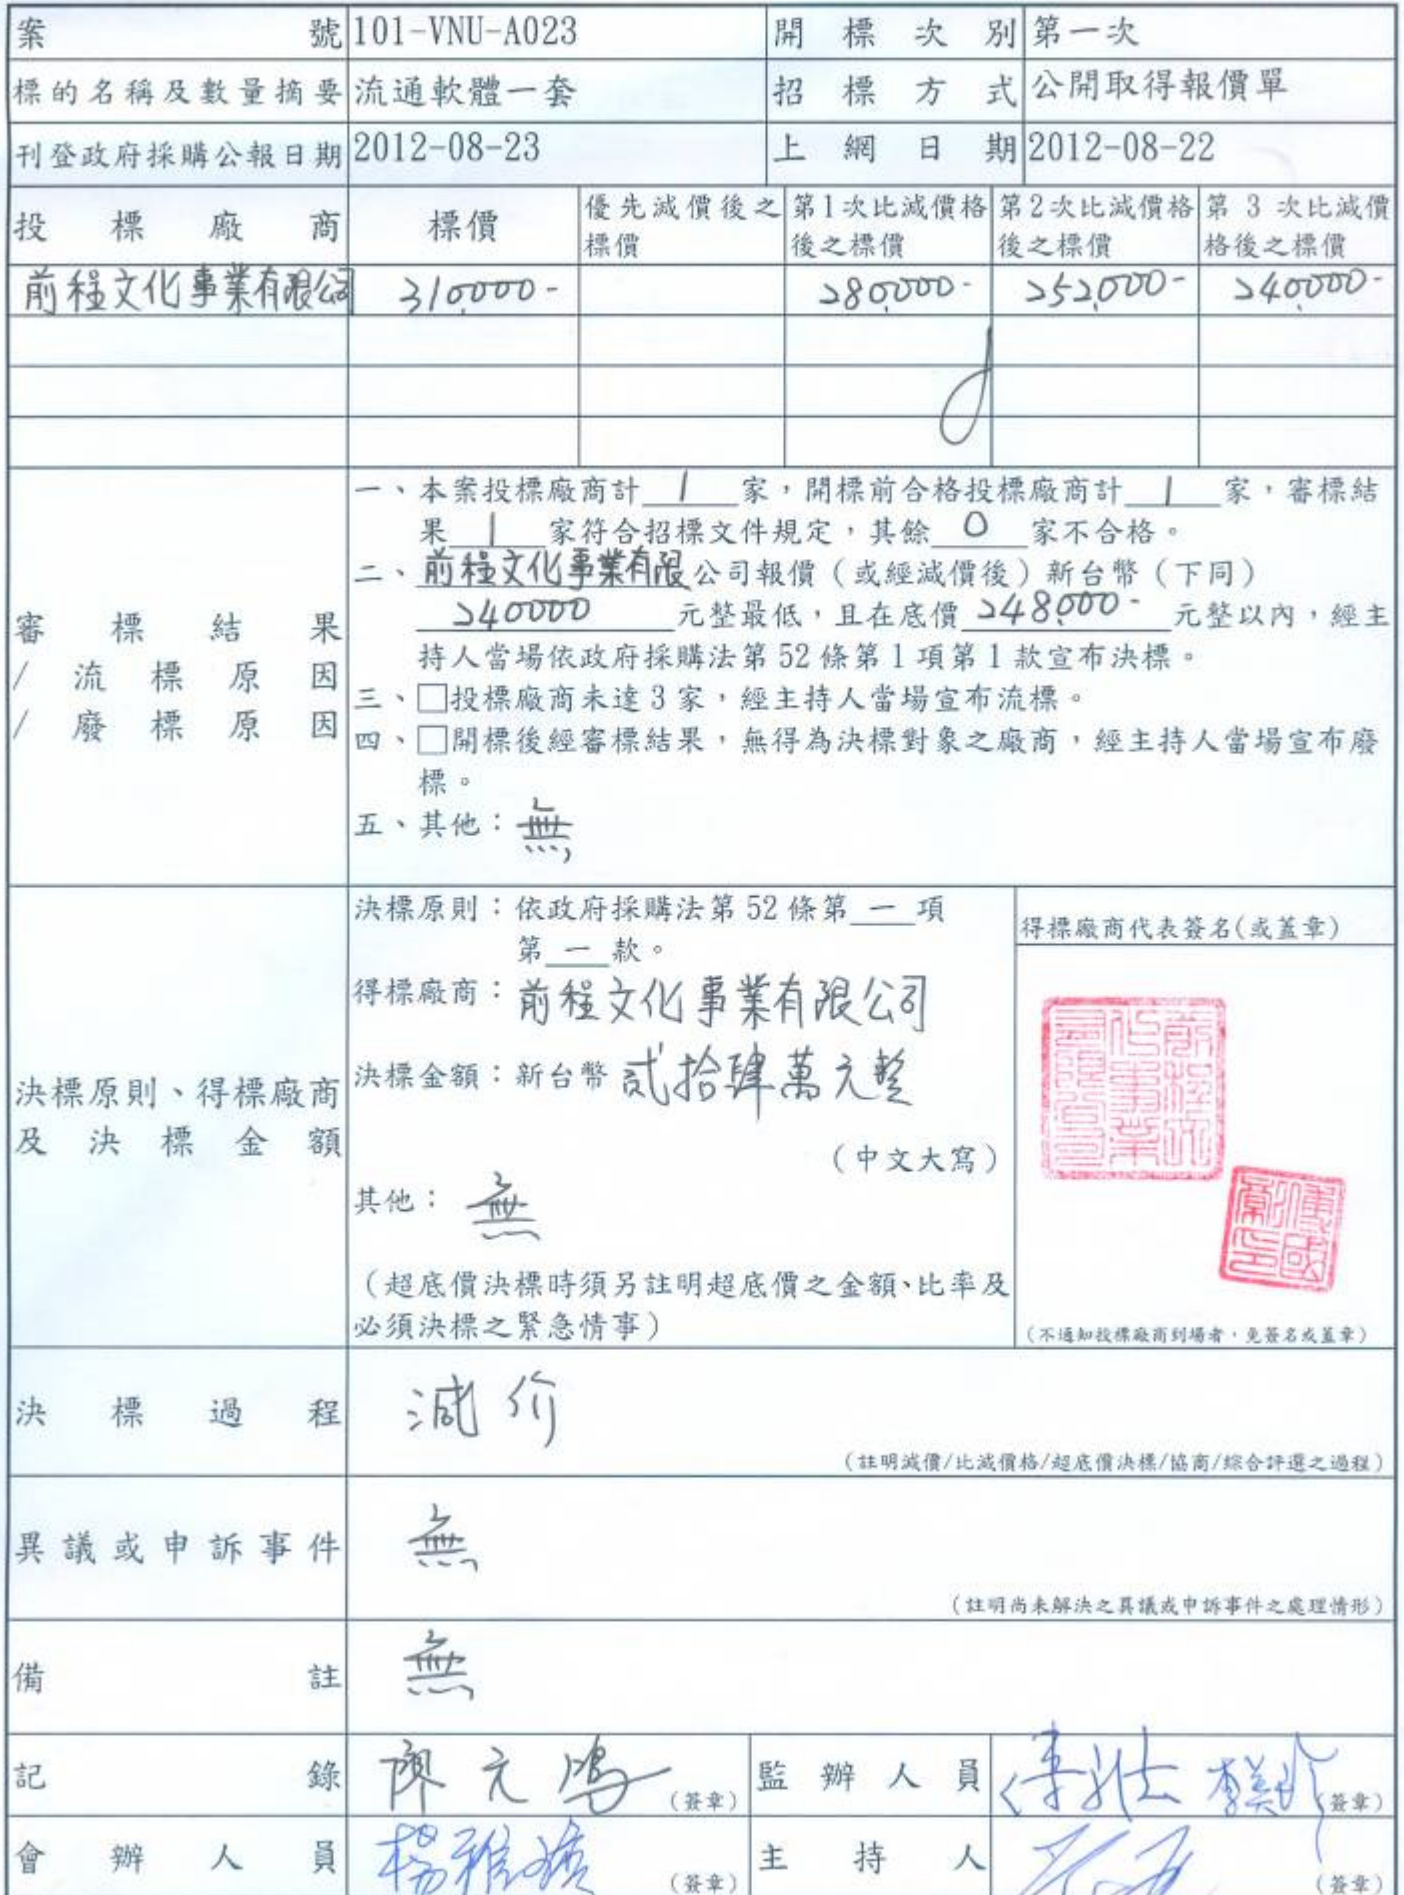 案號 101-VNU-A023 開標次別 第一次
標的名稱及數量摘要 流通軟體一套 招標方式 公開取得報價單
刊登政府採購公報日期 2012-08-23 上網日期 2012-08-22
投標廠商 標價 優先減價後之標價 第1次比減價格後之標價 第2次比減價格後之標價 第3次比減價格後之標價
前程文化事業有限公司 310,000- 280,000- 252,000- 240,000-
審標結果
/流標原因
/廢標原因
一、本案投標廠商計 1 家,開標前合格投標廠商計 1 家,審標結
果 1 家符合招標文件規定,其餘 0 家不合格。
二、前程文化事業有限公司報價(或經減價後)新台幣(下同)
240000 元整最低,且在底價 248,000- 元整以內,經主
持人當場依政府採購法第52條第1項第1款宣布決標。
三、□投標廠商未達3家,經主持人當場宣布流標。
四、□開標後經審標結果,無得為決標對象之廠商,經主持人當場宣布廢
標。
五、其他:無
決標原則、得標廠商
及決標金額
決標原則:依政府採購法第52條第 一 項
第 一 款。
得標廠商:前程文化事業有限公司
決標金額:新台幣 貳拾肆萬元整
(中文大寫)
其他:無
(超底價決標時須另註明超底價之金額、比率及
必須決標之緊急情事)
得標廠商代表簽名(或蓋章)
(不通知投標廠商到場者,免簽名或蓋章)
決標過程 減价
(註明減價/比減價格/超底價決標/協商/綜合評選之過程)
異議或申訴事件 無
(註明尚未解決之異議或申訴事件之處理情形)
備註 無
記錄 廖元鴻 (簽章) 監辦人員 (簽章)
會辦人員 (簽章) 主持人 (簽章)